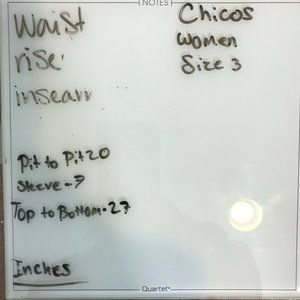 NOTES
Waist
rise
inseam
Chicos
Women
Size 3
Pit to Pit 20
Sleeve-7
Top to Bottom-27
Inches
Quartet